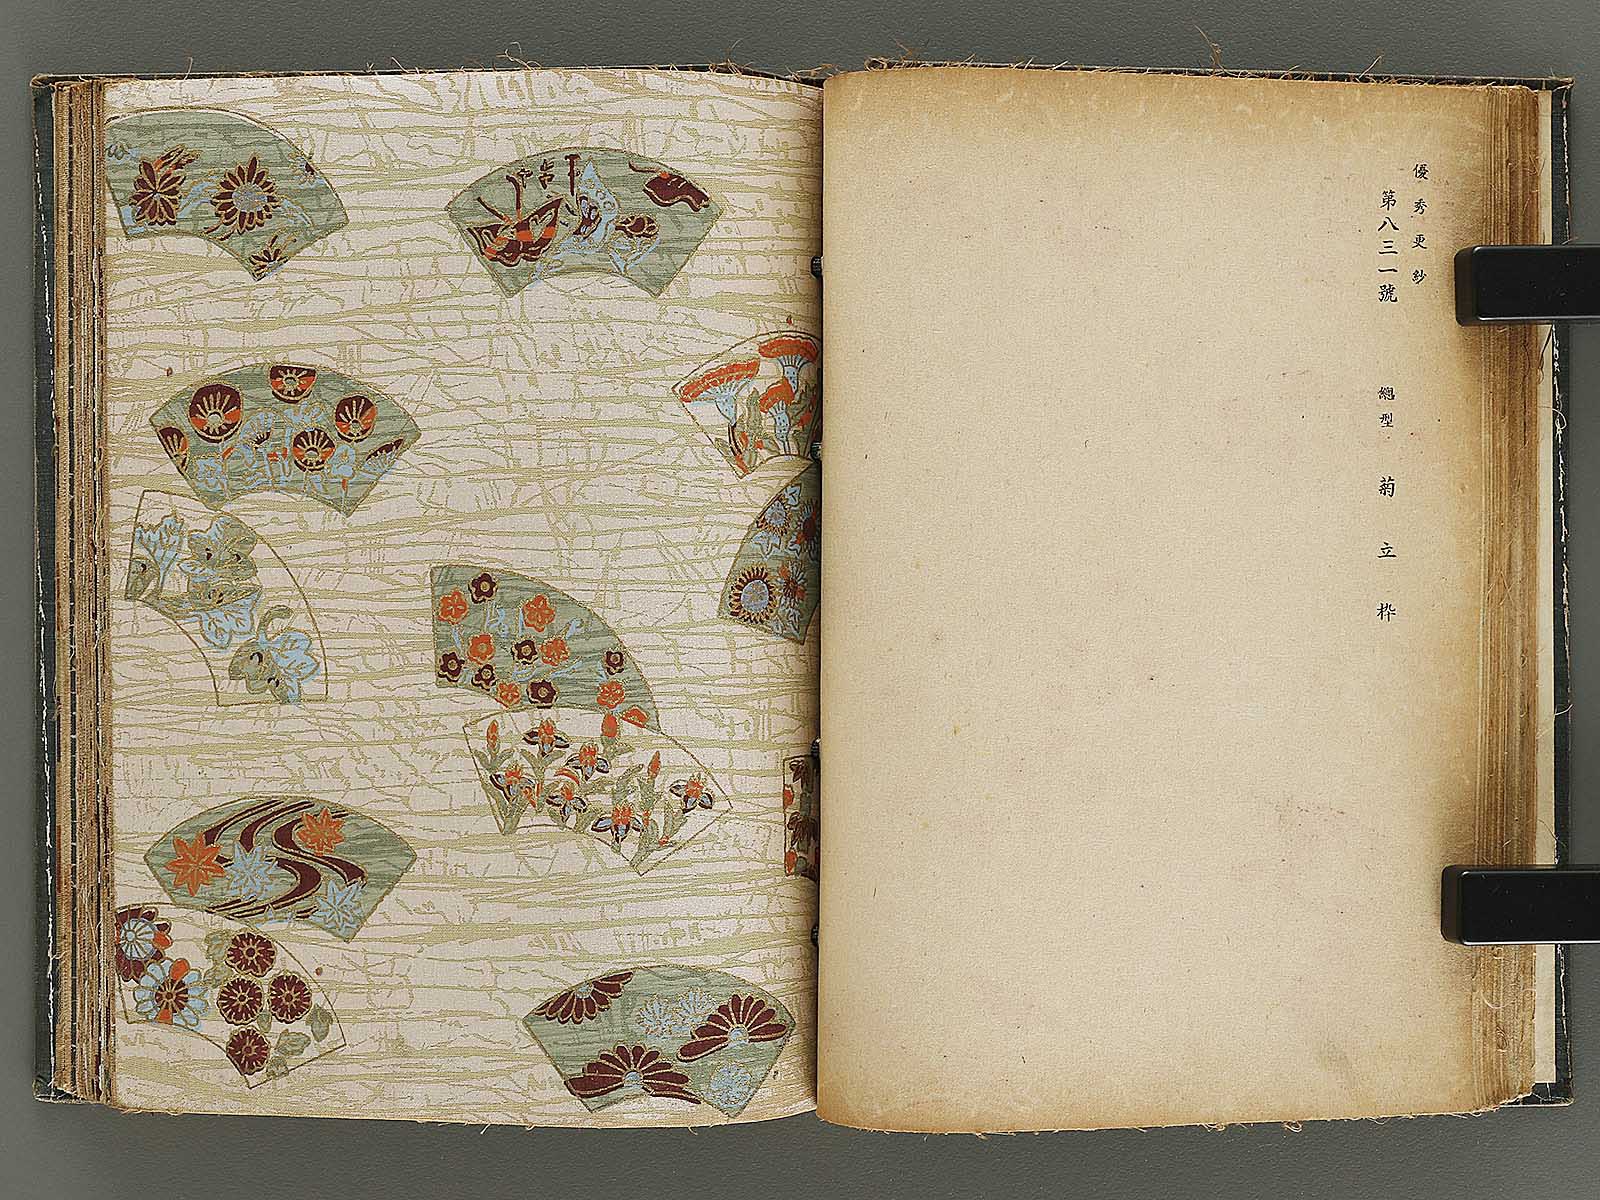 優秀更紗
第八三一號 總型 菊立枠